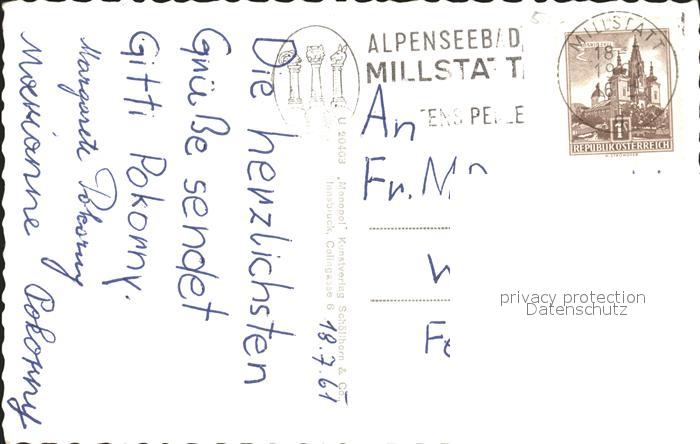 Die herzlichsten
Grüße sendet
Gitti Pokorny.
Margarete Pokorny
Marianne Pokorny
18.7.61
U 20403 „Monopol" Kunstverlag Schöllhorn & Co.
Innsbruck, Colingasse 6
ALPENSEEBAD
MILLSTATT
TENS PERLE
MILLSTATT
18
REPUBLIK ÖSTERREICH
An
Fr. M
privacy protection
Datenschutz